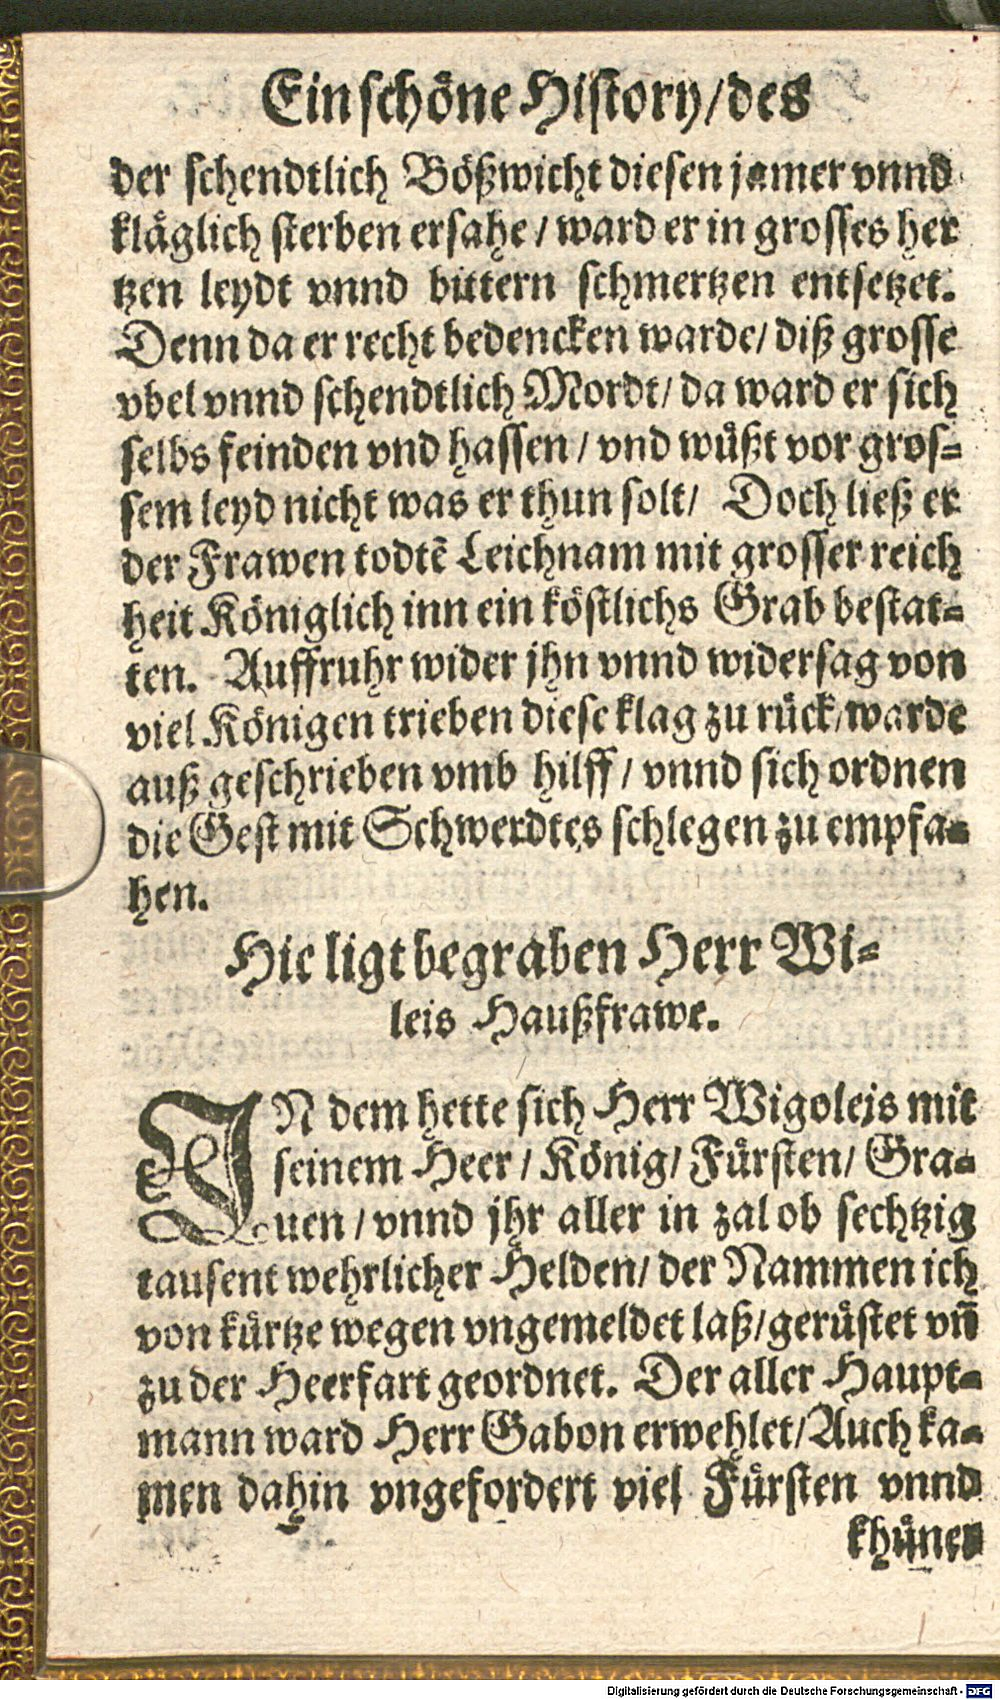 Ein schöne History/des
der schendtlich Bößwicht diesen jamer vnnd
kläglich sterben ersahe / ward er in grosses her
tzen leydt vnnd bittern schmertzen entsetzet.
Denn da er recht bedencken warde/ diß grosse
vbel vnnd schendtlich Mordt/ da ward er sich
selbs feinden vnd hassen / vnd wüßt vor gros=
sem leyd nicht was er thun solt/ Doch ließ er
der Frawen todtē Leichnam mit grosser reich
heit Königlich inn ein köstlichs Grab bestat=
ten. Auffruhr wider jhn vnnd widersag von
viel Königen trieben diese klag zu rück/warde
auß geschrieben vmb hilff / vnnd sich ordnen
die Gest mit Schwerdtes schlegen zu empfa=
hen.
Hie ligt begraben Herr Wi=
leis Haußfrawe.
IN dem hette sich Herr Wigoleis mit
seinem Heer / König/ Fürsten/ Gra=
uen / vnnd jhr aller in zal ob sechtzig
tausent wehrlicher Helden/ der Nammen ich
von kürtze wegen vngemeldet laß/gerüstet vñ
zu der Heerfart geordnet. Der aller Haupt=
mann ward Herr Gabon erwehlet/Auch ka=
men dahin vngefordert viel Fürsten vnnd
khüner
Digitalisierung gefördert durch die Deutsche Forschungsgemeinschaft - DFG